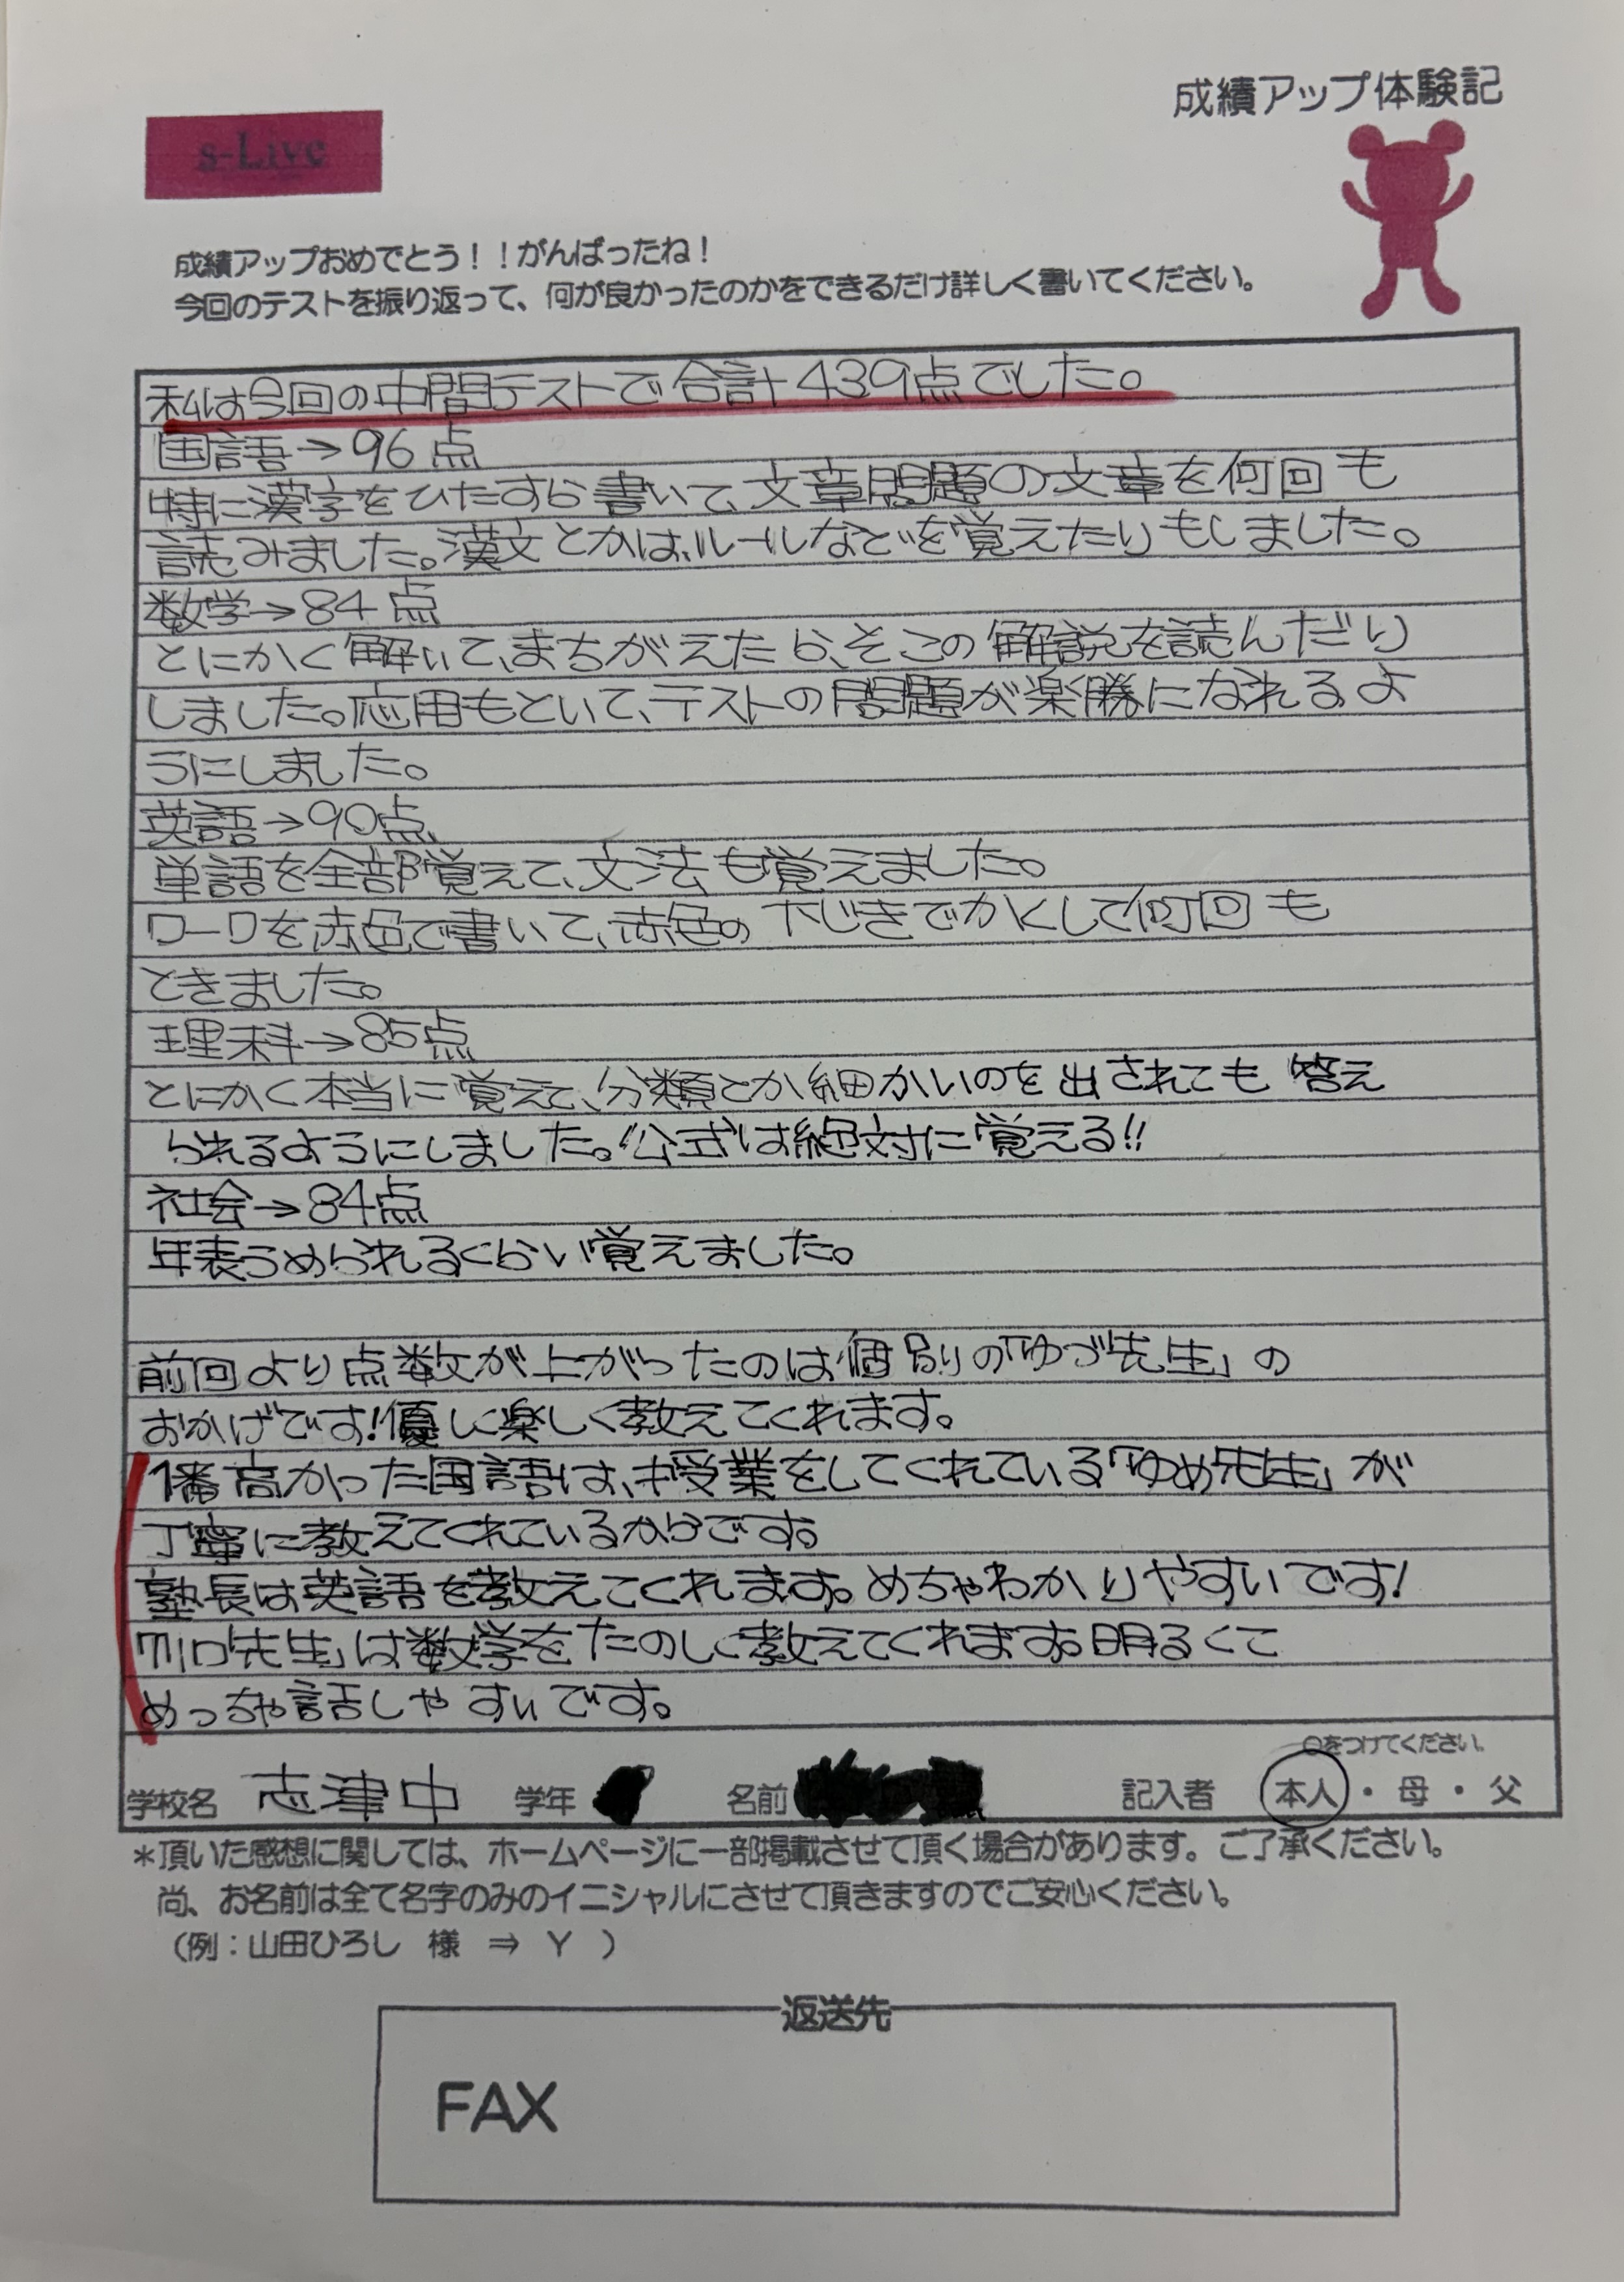 成績アップ体験記
s-Live
成績アップおめでとう！！がんばったね！
今回のテストを振り返って、何が良かったのかをできるだけ詳しく書いてください。
私は今回の中間テストで合計439点でした。
国語→96点
特に漢字をひたすら書いて、文章問題の文章を何回も
読みました。漢文とかは、ルールなどを覚えたりもしました。
数学→84点
とにかく解いて、まちがえたら、そこの解説を読んだり
しました。応用もといて、テストの問題が楽勝になれるよ
うにしました。
英語→90点
単語を全部覚えて、文法も覚えました。
ワークを赤色で書いて、赤色の下じきでかくして何回も
ときました。
理科→85点
とにかく本当に覚えて、分類とか細かいのを出されても答え
られるようにしました。公式は絶対に覚える!!
社会→84点
年表うめられるくらい覚えました。
前回より点数が上がったのは個別の「ゆづ先生」の
おかげです!優しく楽しく教えてくれます。
1番高かった国語は、授業をしてくれている「ゆめ先生」が
丁寧に教えてくれているからです。
塾長は英語を教えてくれます。めちゃわかりやすいです!
先生」は数学をたのしく教えてくれます。明るくて
めっちゃ話しやすいです。
〇をつけてください。
学校名 志津中 学年 名前 記入者 本人・母・父
＊頂いた感想に関しては、ホームページに一部掲載させて頂く場合があります。ご了承ください。
尚、お名前は全て名字のみのイニシャルにさせて頂きますのでご安心ください。
（例：山田ひろし 様 ⇒ Y ）
返送先
FAX